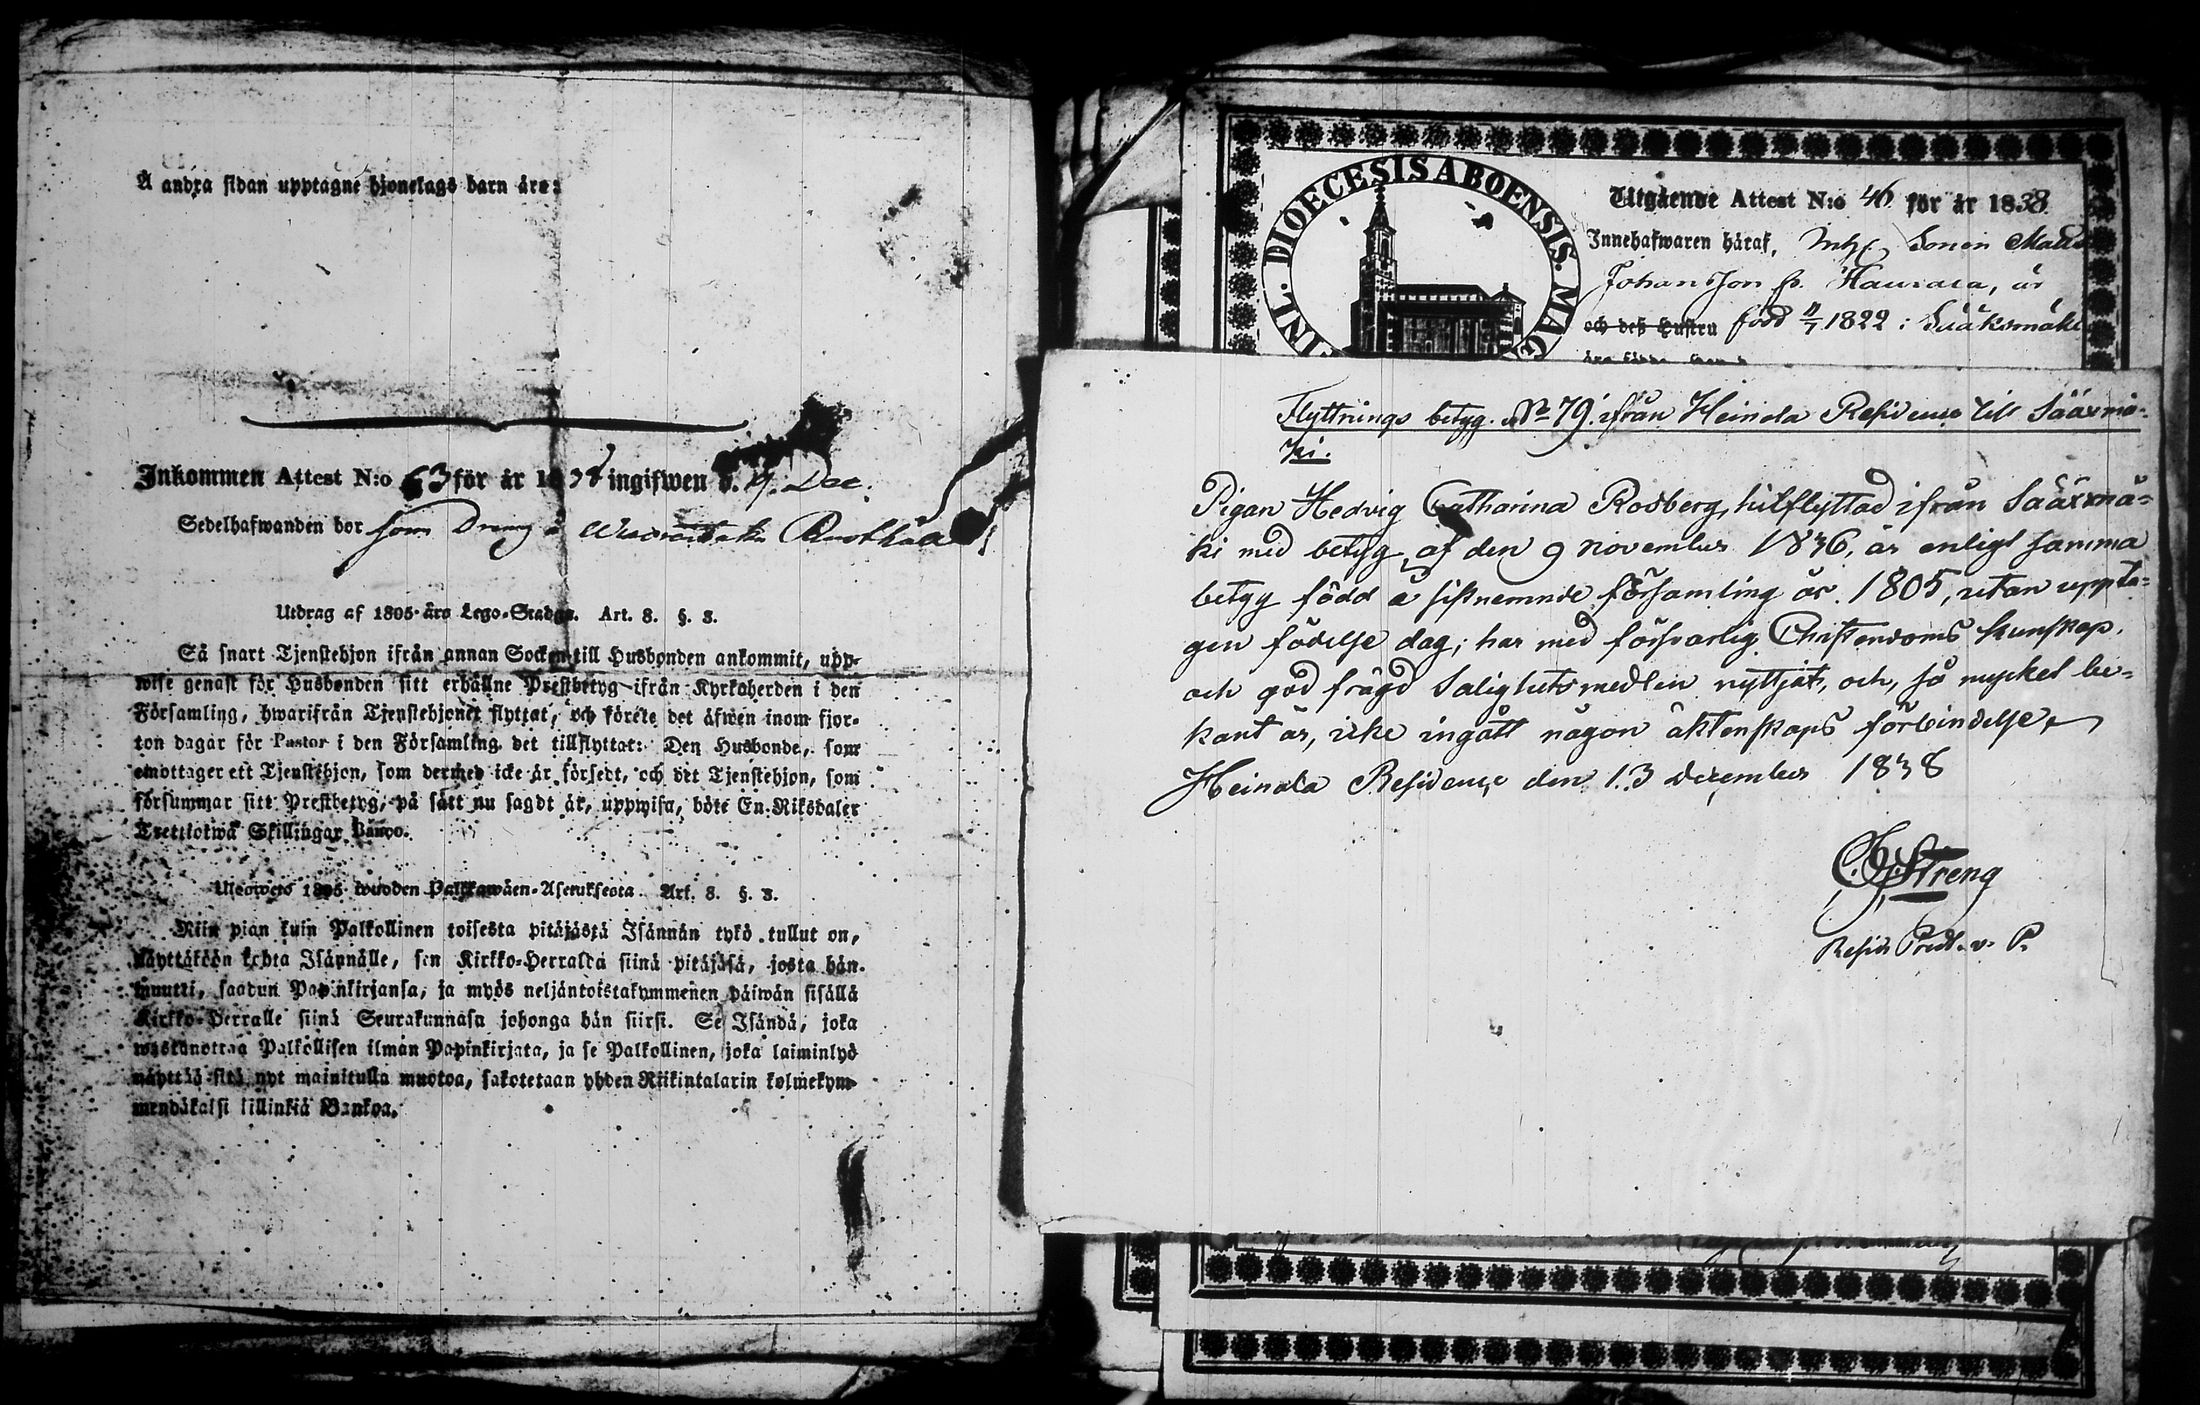 Å andra sidan upptagne hjonelags barn äro:
Inkommen Attest N:o 63 för år 1838 ingifwen d. 9. Dec.
Sedelhafwanden bor som Dräng å
Utdrag af 1805 års Lego-Stadga. Art. 8. §. 3.
Så snart Tjenstehjon ifrån annan Socken till Husbonden ankommit, upp-
wise genast för Husbonden sitt erhållne Prestbetyg ifrån Kyrkoherden i den
Församling, hwarifrån Tjenstehjonet flyttat, och förete det äfwen inom fjor-
ton dagar för Pastor i den Församling det tillflyttat: Den Husbonde, som
emottager ett Tjenstehjon, som dermed icke är försedt, och det Tjenstehjon, som
försummar sitt Prestbetyg, på sätt nu sagdt är, uppwisa, böte En Riksdaler
Trettiotwå Skillingar Banco.
Ulosweto 1805 wuoden Palkkawäen-Asetuksesta. Art. 8. §. 3.
Niin pian kuin Palkollinen toisesta pitäjästä Isännän tykö tullut on,
näyttäköön kohta Isännälle, sen Kirkko-Herralda siinä pitäjäsä, josta hän
muutti, saadun Papinkirjansa, ja myös neljäntoistakymmenen päiwän sisällä
Kirkko-Herralle siinä Seurakunnasa johonga hän siirsi. Se Isändä, joka
wastanottaa Palkollisen ilman Papinkirjata, ja se Palkollinen, joka laiminlyö
näyttää sitä nyt mainitulla muotoa, sakotetaan yhden Riikintalarin kolmekym-
mendäkaksi killinkiä Bankoa.
FINL. DIOECESIS ABOENSIS. MAG
Utgående Attest N:o 46 för år 1838
Innehafwaren häraf, Sonen Matts
Johansson fr. Haurala, är
och dess Hustru född 11/7 1822 i Sääksmäki
Flyttnings betyg No 79. ifrån Heinola Residence till Sääxmä-
ki.
Pigan Hedvig Catharina Rosberg, hitflyttad ifrån Sääxmä-
ki med betyg af den 9 november 1836, är enligt samma
betyg född å sistnemnde församling år 1805, utan uppta-
gen födelse dag; har med försvarlig Christendoms kunskap
och god frägd Salighetsmedlen nyttjat, och, så mycket be-
kant är, icke ingått någon äktenskaps förbindelse
Heinola Residence den 13 december 1838
Streng
Resid. Pred. v. P.